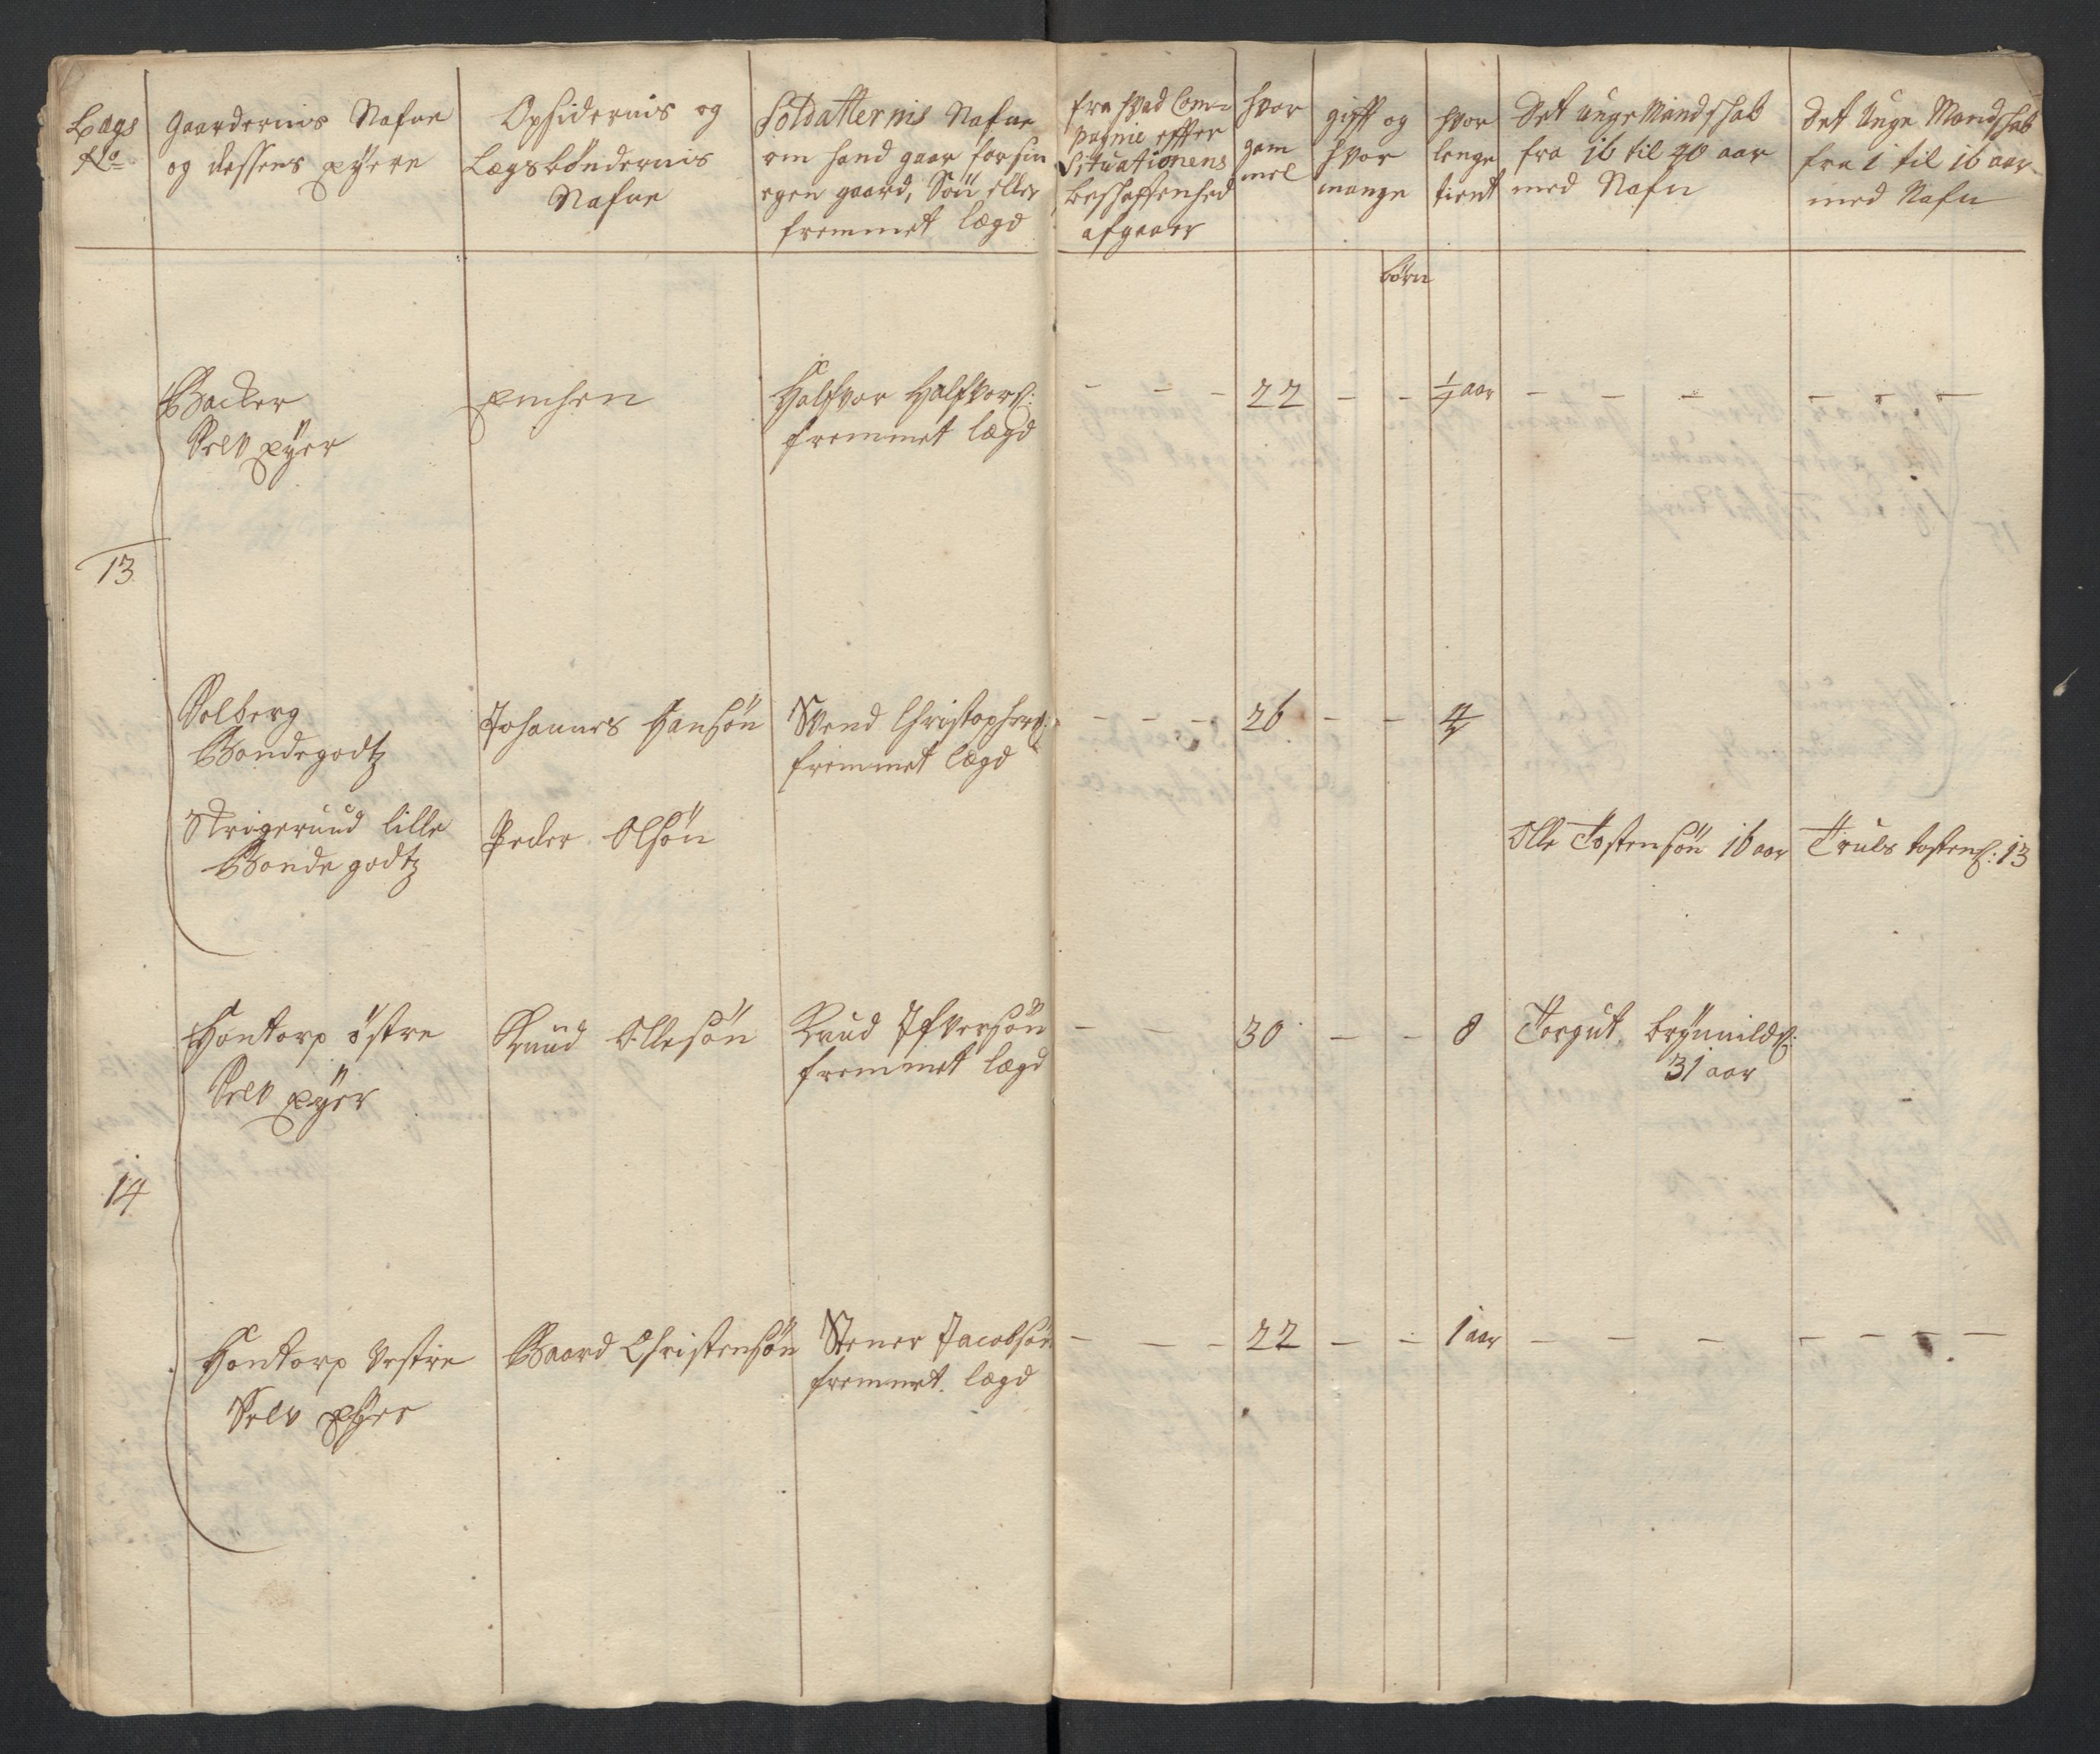 Lægs
No
Gaardernis Nafne
og dessens eyere
Opsidernis og
Lægsbøndernis
Nafne
Soldatternis Nafne
om hand gaar for sin
egen gaard, Søn eller
fremmet lægd
fra hvad Com=
pagnie effter
Situationens
beskaffenhed
afgaaer
hvor
gam
mel
gifft og
hvor
mange
hvor
lenge
tient
Det unge Mandskab
fra 16 til 40 aar
med Nafn
Det Unge Mandskab
fra 1 til 16 aar
med Nafn
børn
13
Backer
Selv eyer
Halfvor Halfvors: - - - 22 - - ½ aar - - - - - - -
fremmet lægd
Solberg
Bondegodtz
Johannes Hansøn
Svend Christophers: - - - 26 - - 4
fremmet lægd
Strigeruud lille
Bondegodtz
Peder Olsøn
Olle Tostensøn 16 aar
Truls tostens: 13
14
Hontorp østre
Selv eyer
Knud Ollesøn
Knud Ifversøn - - 30 - - 8
fremmet lægd
Torgut brynnilds:
31 aar
Hontorp Vestre
Selv eyer
Baard Christensøn
Stener Jacobsøn - - - 22 - - 1 aar - - - - - - -
fremmet lægd